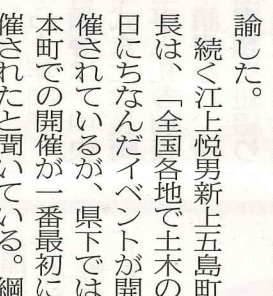 諭した。
続く江上悦男新上五島町
長は、「全国各地で土木の
日にちなんだイベントが開
催されているが、県下では
本町での開催が一番最初に
催されたと聞いている。綱